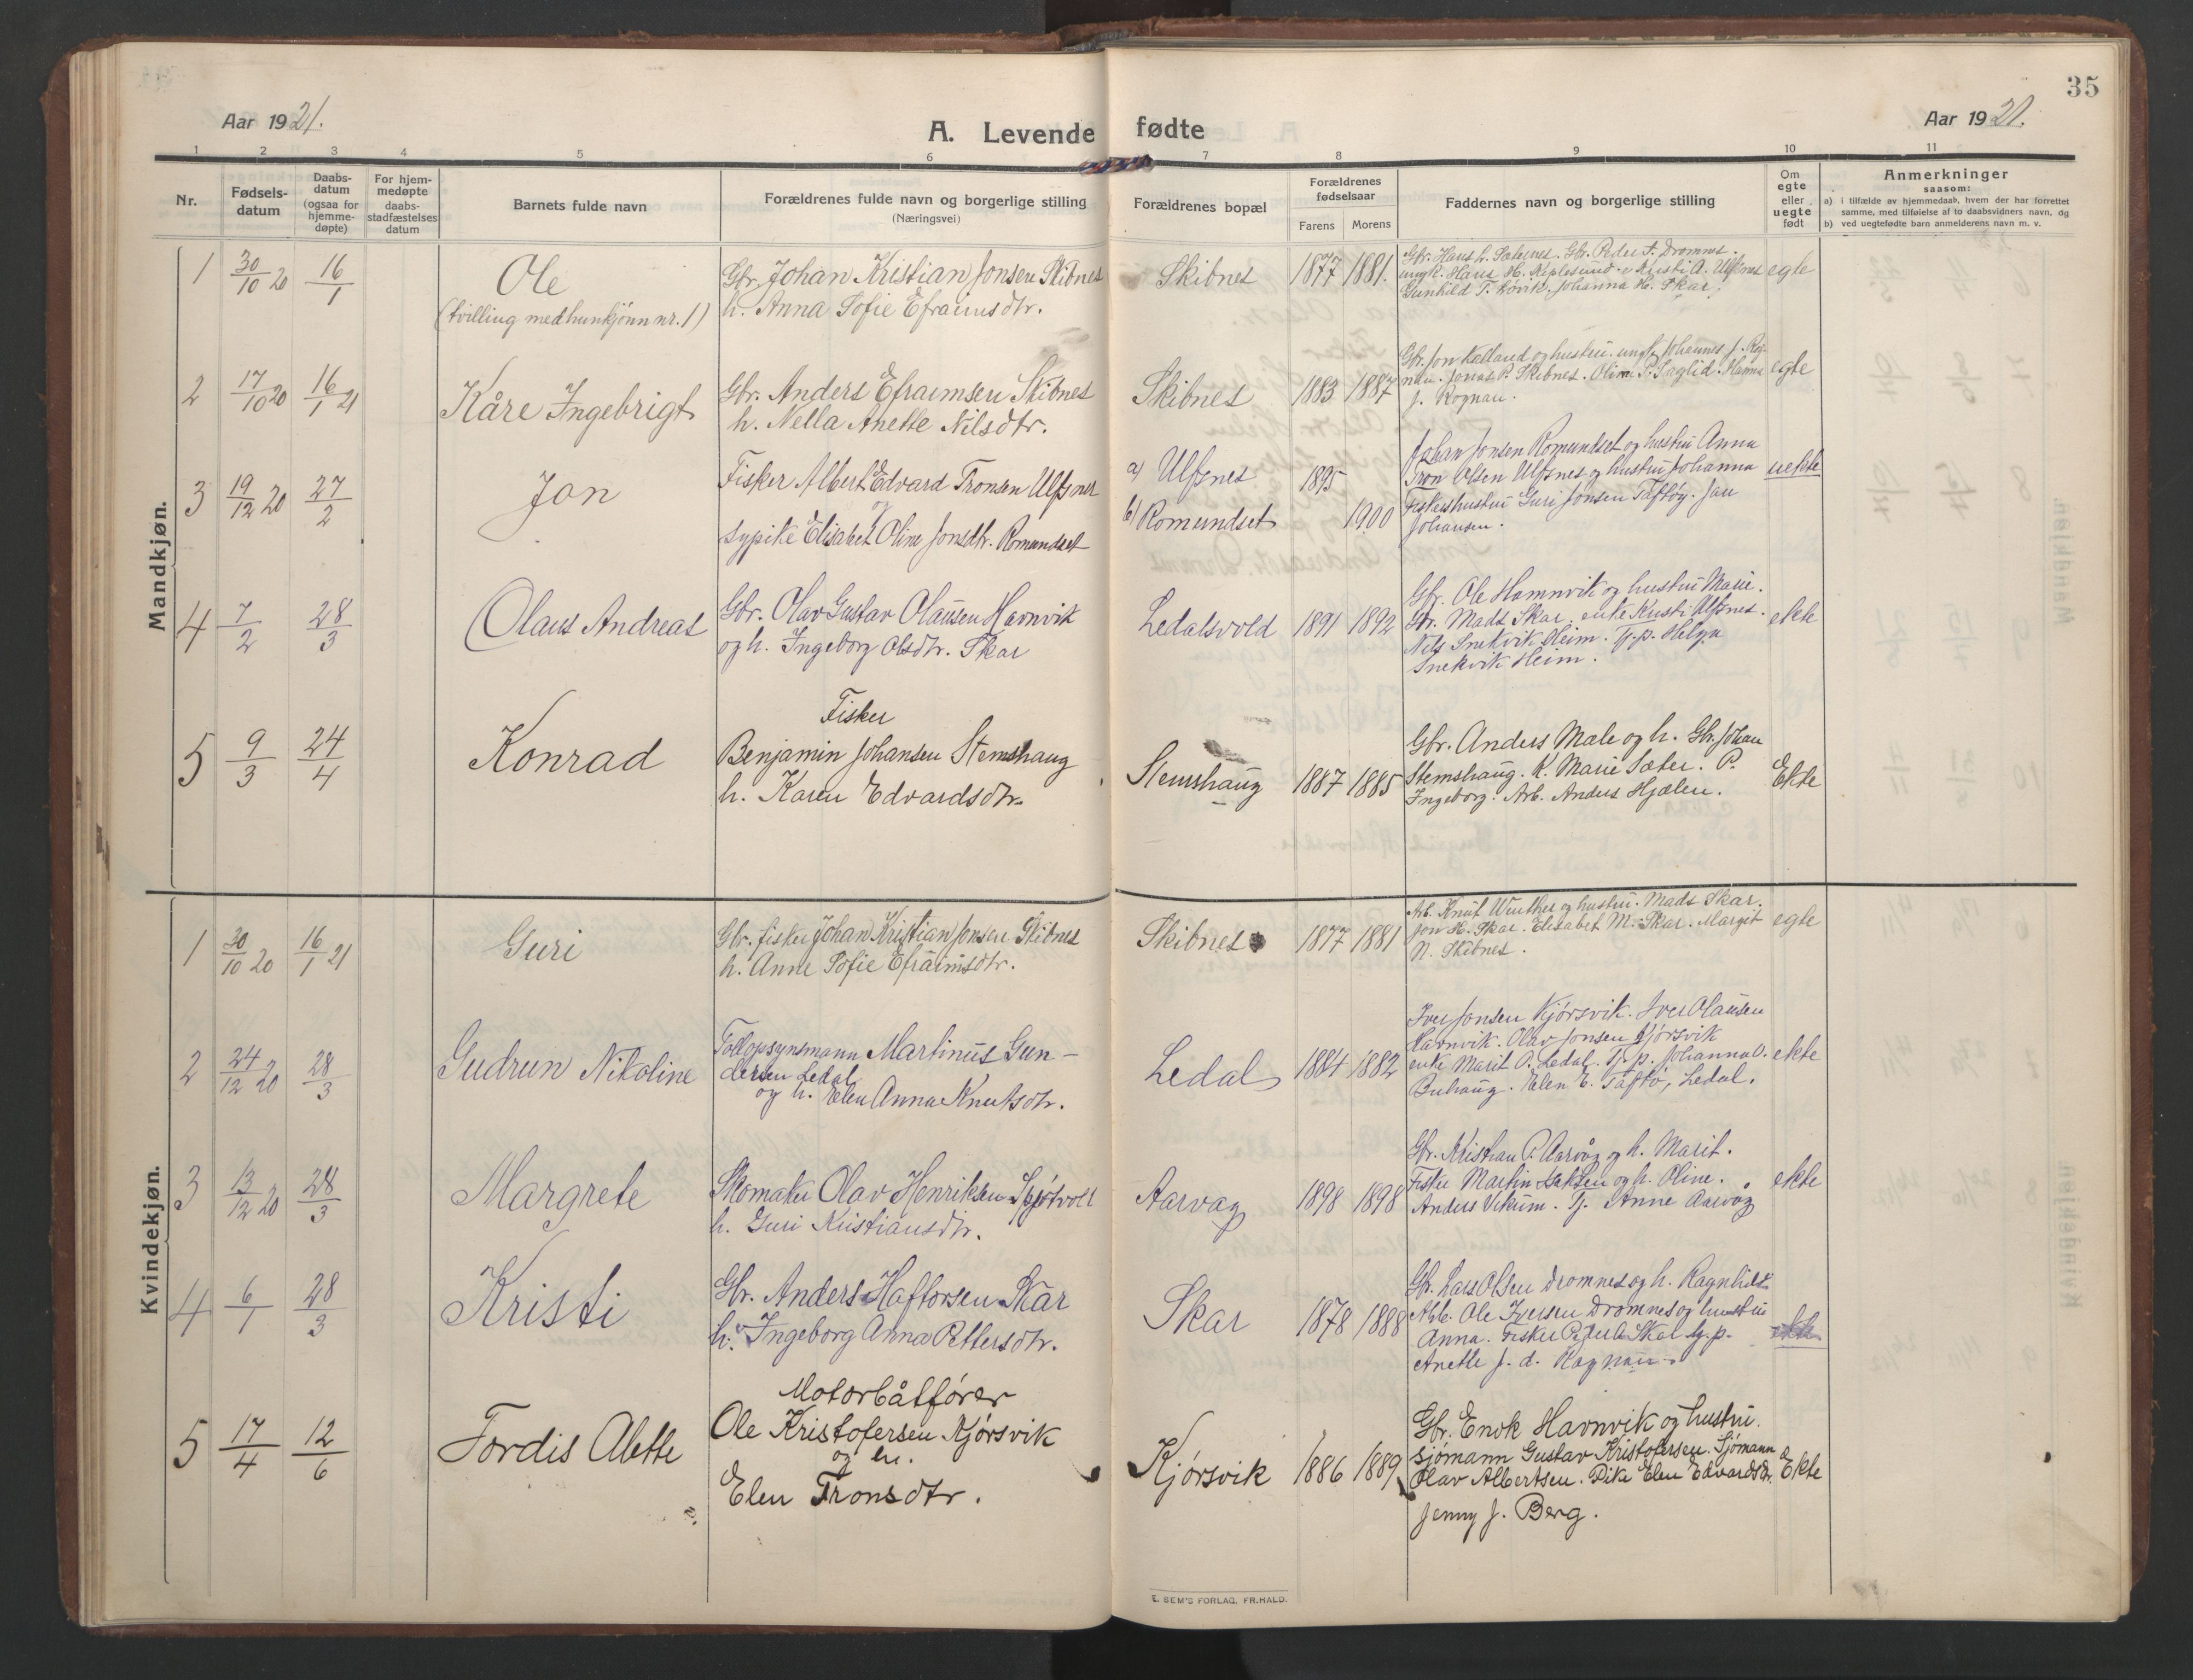 35
Aar 1921.
A. Levende fødte
Aar 1921.
1 2 3 4 5 6 7 8 9 10 11
Nr.
Fødsels-
datum
Daabs-
datum
(ogsaa for
hjemme-
døpte)
For hjem-
medøpte
daabs-
stadfæstelses
datum
Barnets fulde navn
Forældrenes fulde navn og borgerlige stilling
(Næringsvei)
Forældrenes bopæl
Forældrenes
fødselsaar
Farens Morens
Faddernes navn og borgerlige stilling
Om
egte
eller
uegte
født
Anmerkninger
saasom:
a) i tilfælde av hjemmedaab, hvem der har forrettet
samme, med tilføielse af to daabsvidners navn, og
b) ved uegtefødte barn anmelderens navn m. v.
Mandkjøn.
1 30/10 20 16/1
Ole
(tvilling med hunkjønn nr. 1)
Gbr. Johan Kristian Jonsen Skibnes
h. Anna Sofie Efraimsdtr.
Skibnes 1877 1881.
Gbr. Hans L. Gbr. Peder A. Dromnes.
ungk. Hans H. Kristi A. Ulfsnes
Gunhild T. Røvik. Johanna H. Skar.
egte
2 17/10 20 16/1 21
Kåre Ingebrigt
Gbr. Anders Efraimsen Skibnes
h. Nella Anette Nilsdtr.
Skibnes 1883 1887
Gbr. Jon og hustru. ungk. Johannes J. Rog-
nau. Jonas P. Skibnes. Oline P. Hanna
J. Rognau.
egte
3 19/12 20 27/2
Jon
Fisker Albert Edvard Tronsen Ulfsnes
og
sypike Elisabet Oline Jonsdtr. Romundset
a) Ulfsnes 1895
b) Romundset 1900
Johan Jonsen Romundset og hustru Anna
Tron Olsen Ulfsnes og hustru Johanna
Fiskerhustru Guri Jonsen Taftøy. Jan
Johansen.
uekte
4 7/2 28/3
Olaus Andreas
Gbr. Olav Gustav Olausen Havnvik
og h. Ingeborg Olsdtr. Skar
Ledalsvold 1891 1892
Gbr. Ole Hamnvik og hustru Marie.
Gbr. Mads Skar. enke Kristi Ulfsnes.
Nils Snekvik Heim. Tj.p. Helga
Snekvik Heim.
ekte
5 9/3 24/4
Konrad
Fisker
Benjamin Johansen Stemshaug
h. Karen Edvardsdtr.
Stemshaug 1887 1885
Gbr. Anders Male og h. Gbr. Johan
Stemshaug. K. Marie Sæter. P.
Ingeborg. Arb. Anders Hjælen.
Ekte
Kvindekjøn.
1 30/10 20 16/1 21
Guri
Gbr. fisker Johan Kristian Jonsen Skibnes
h. Anne Sofie Efraimsdtr.
Skibnes 1877 1881
Arb. Knut Winther og hustru. Mads Skar.
Jon H. Skar. Elisabet M. Skar. Margit
N. Skibnes.
egte
2 24/12 20 28/3
Gudrun Nikoline
Tollopsynsmann Martinus Gun-
dersen Ledal
og h. Elen Anna Knutsdtr.
Ledal 1884 1882
Iver Jonsen Kjørsvik. Iver Olausen
Havnvik. Olav Jonsen Kjørsvik
enke Marit O. Ledal. Tj. p. Johanna O.
Buhaug. Elen E. Taftø, Ledal.
ekte
3 13/12 20 28/3
Margrete
Skomaker Olav Henriksen Skjøtvoll
h. Guri Kristiansdtr.
Aarvag 1898 1898
Gbr. Kristian P. Aarvåg og h. Marit.
Fisker Martin Isaksen og h. Oline.
Anders Vikum. Tj. Anne Aarvåg
ekte
4 6/1 28/3
Kristi
Gbr. Anders Haftorsen Skar
h. Ingeborg Anna Pettersdtr.
Skar 1878 1888
Gbr. Lars Olsen Dromnes og h. Ragnhild
Arb. Ole Iversen Dromnes og hustru
Anna. Fisker Skar tj.p.
Anette J. d. Rognau
ekte
5 17/4 12/6
Tordis Alette
Motorbåtfører
Ole Kristofersen Kjørsvik
og h.
Elen Tronsdtr.
Kjørsvik 1886 1889
Gbr. Enok Havnvik og hustru.
Sjømann Gustav Kristofersen. Sjømann
Olav Albertsen. Pike Elen Edvardsdtr.
Jenny J. Berg.
Ekte
E. SEM'S FORLAG, FR.HALD.